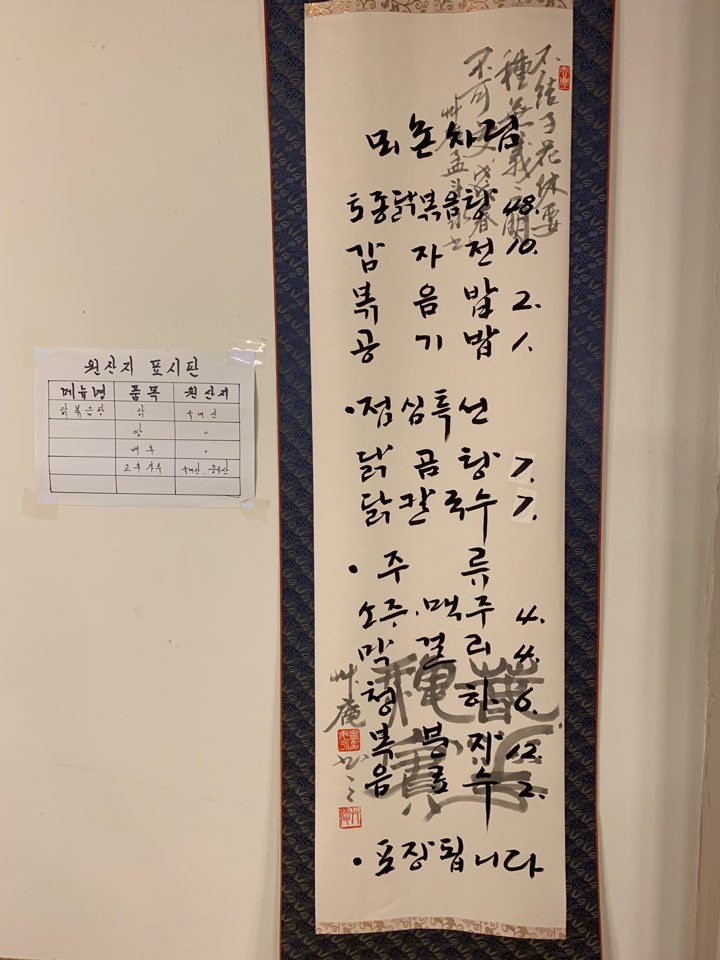 원산지 표시판
메뉴명 품목 원산지
닭볶음탕 닭 국내산
쌀 〃
배추 〃
고추가루 국내산. 중국산.
차림
토종닭볶음탕 48.
감자전 10.
볶음밥 2.
공기밥 1.
·점심특선
닭곰탕 7.
닭칼국수 7.
·주류
소주.맥주 4.
막걸리 4.
청하 6.
복분자 12.
음료수 2.
·포장됩니다
不結子花休要
種無義之朋
不可交
艸庵